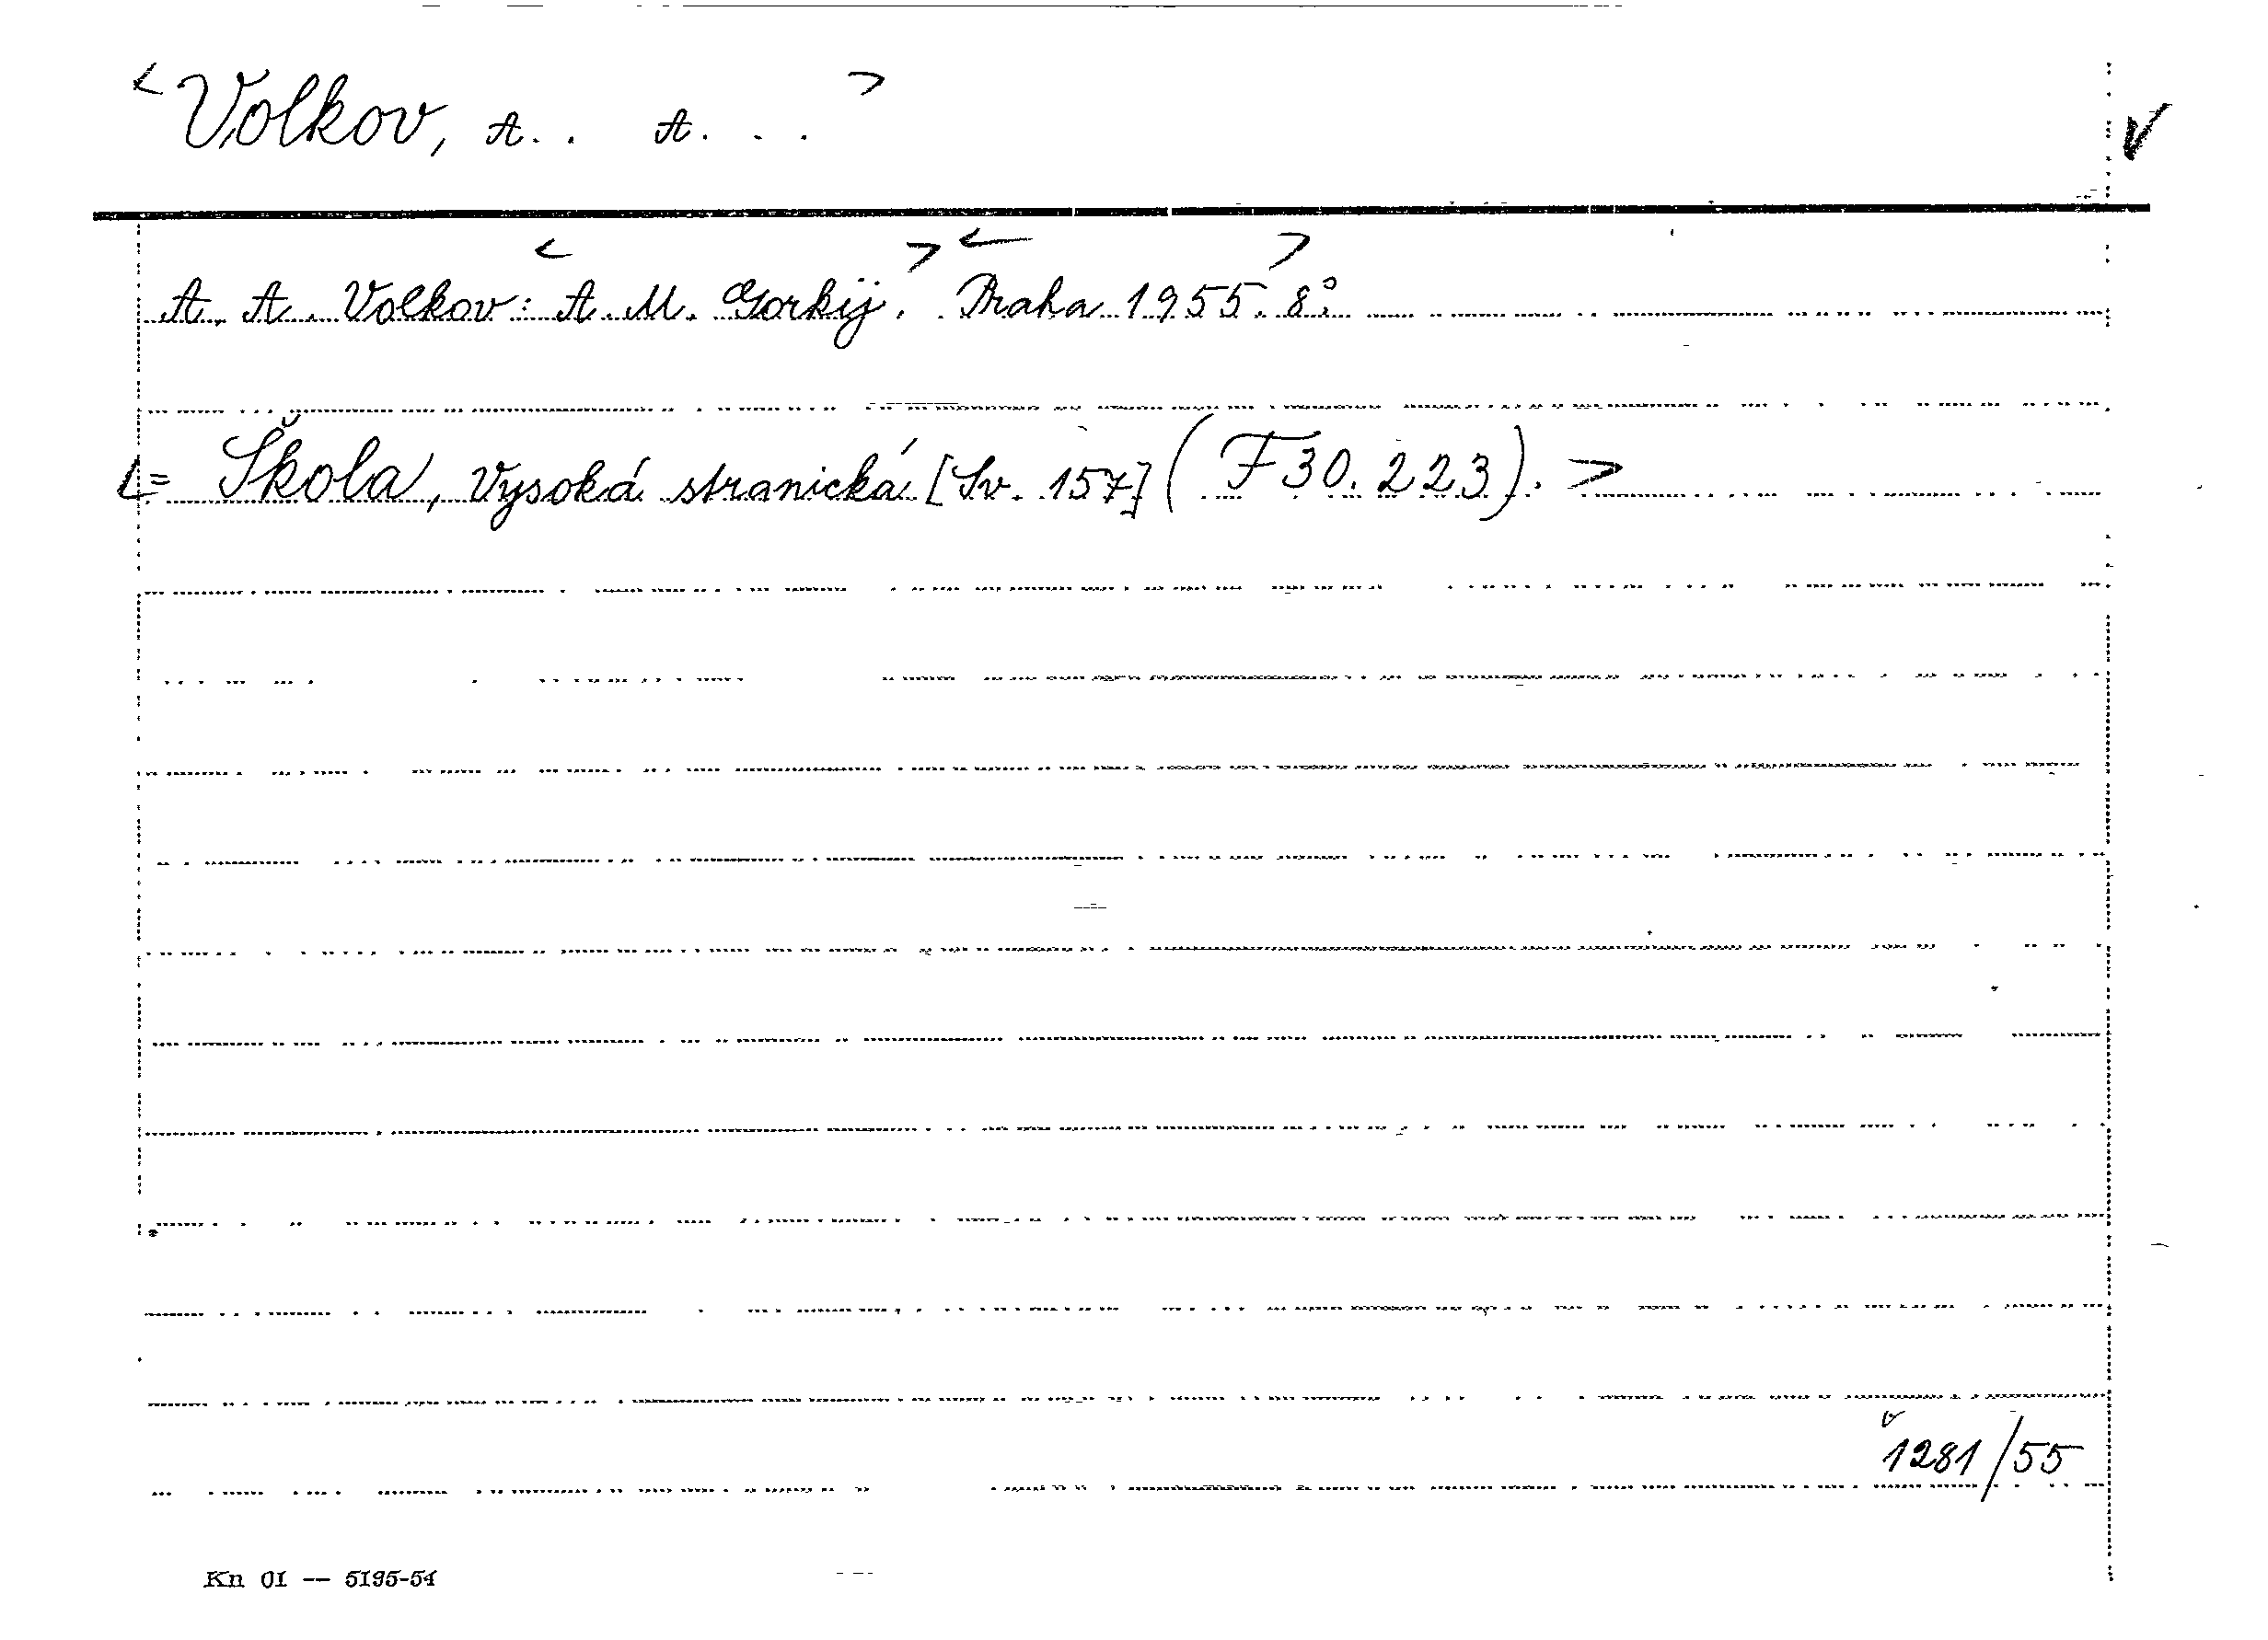 <Volkov, A.. A...>
V
A. A. Volkov: <A. M. Gorkij.> <Praha 1955.> 8°.
<= Škola, Vysoká stranická [Sv. 157] (F 30.223).>
1281/55
Kn 01 -- 5195-54